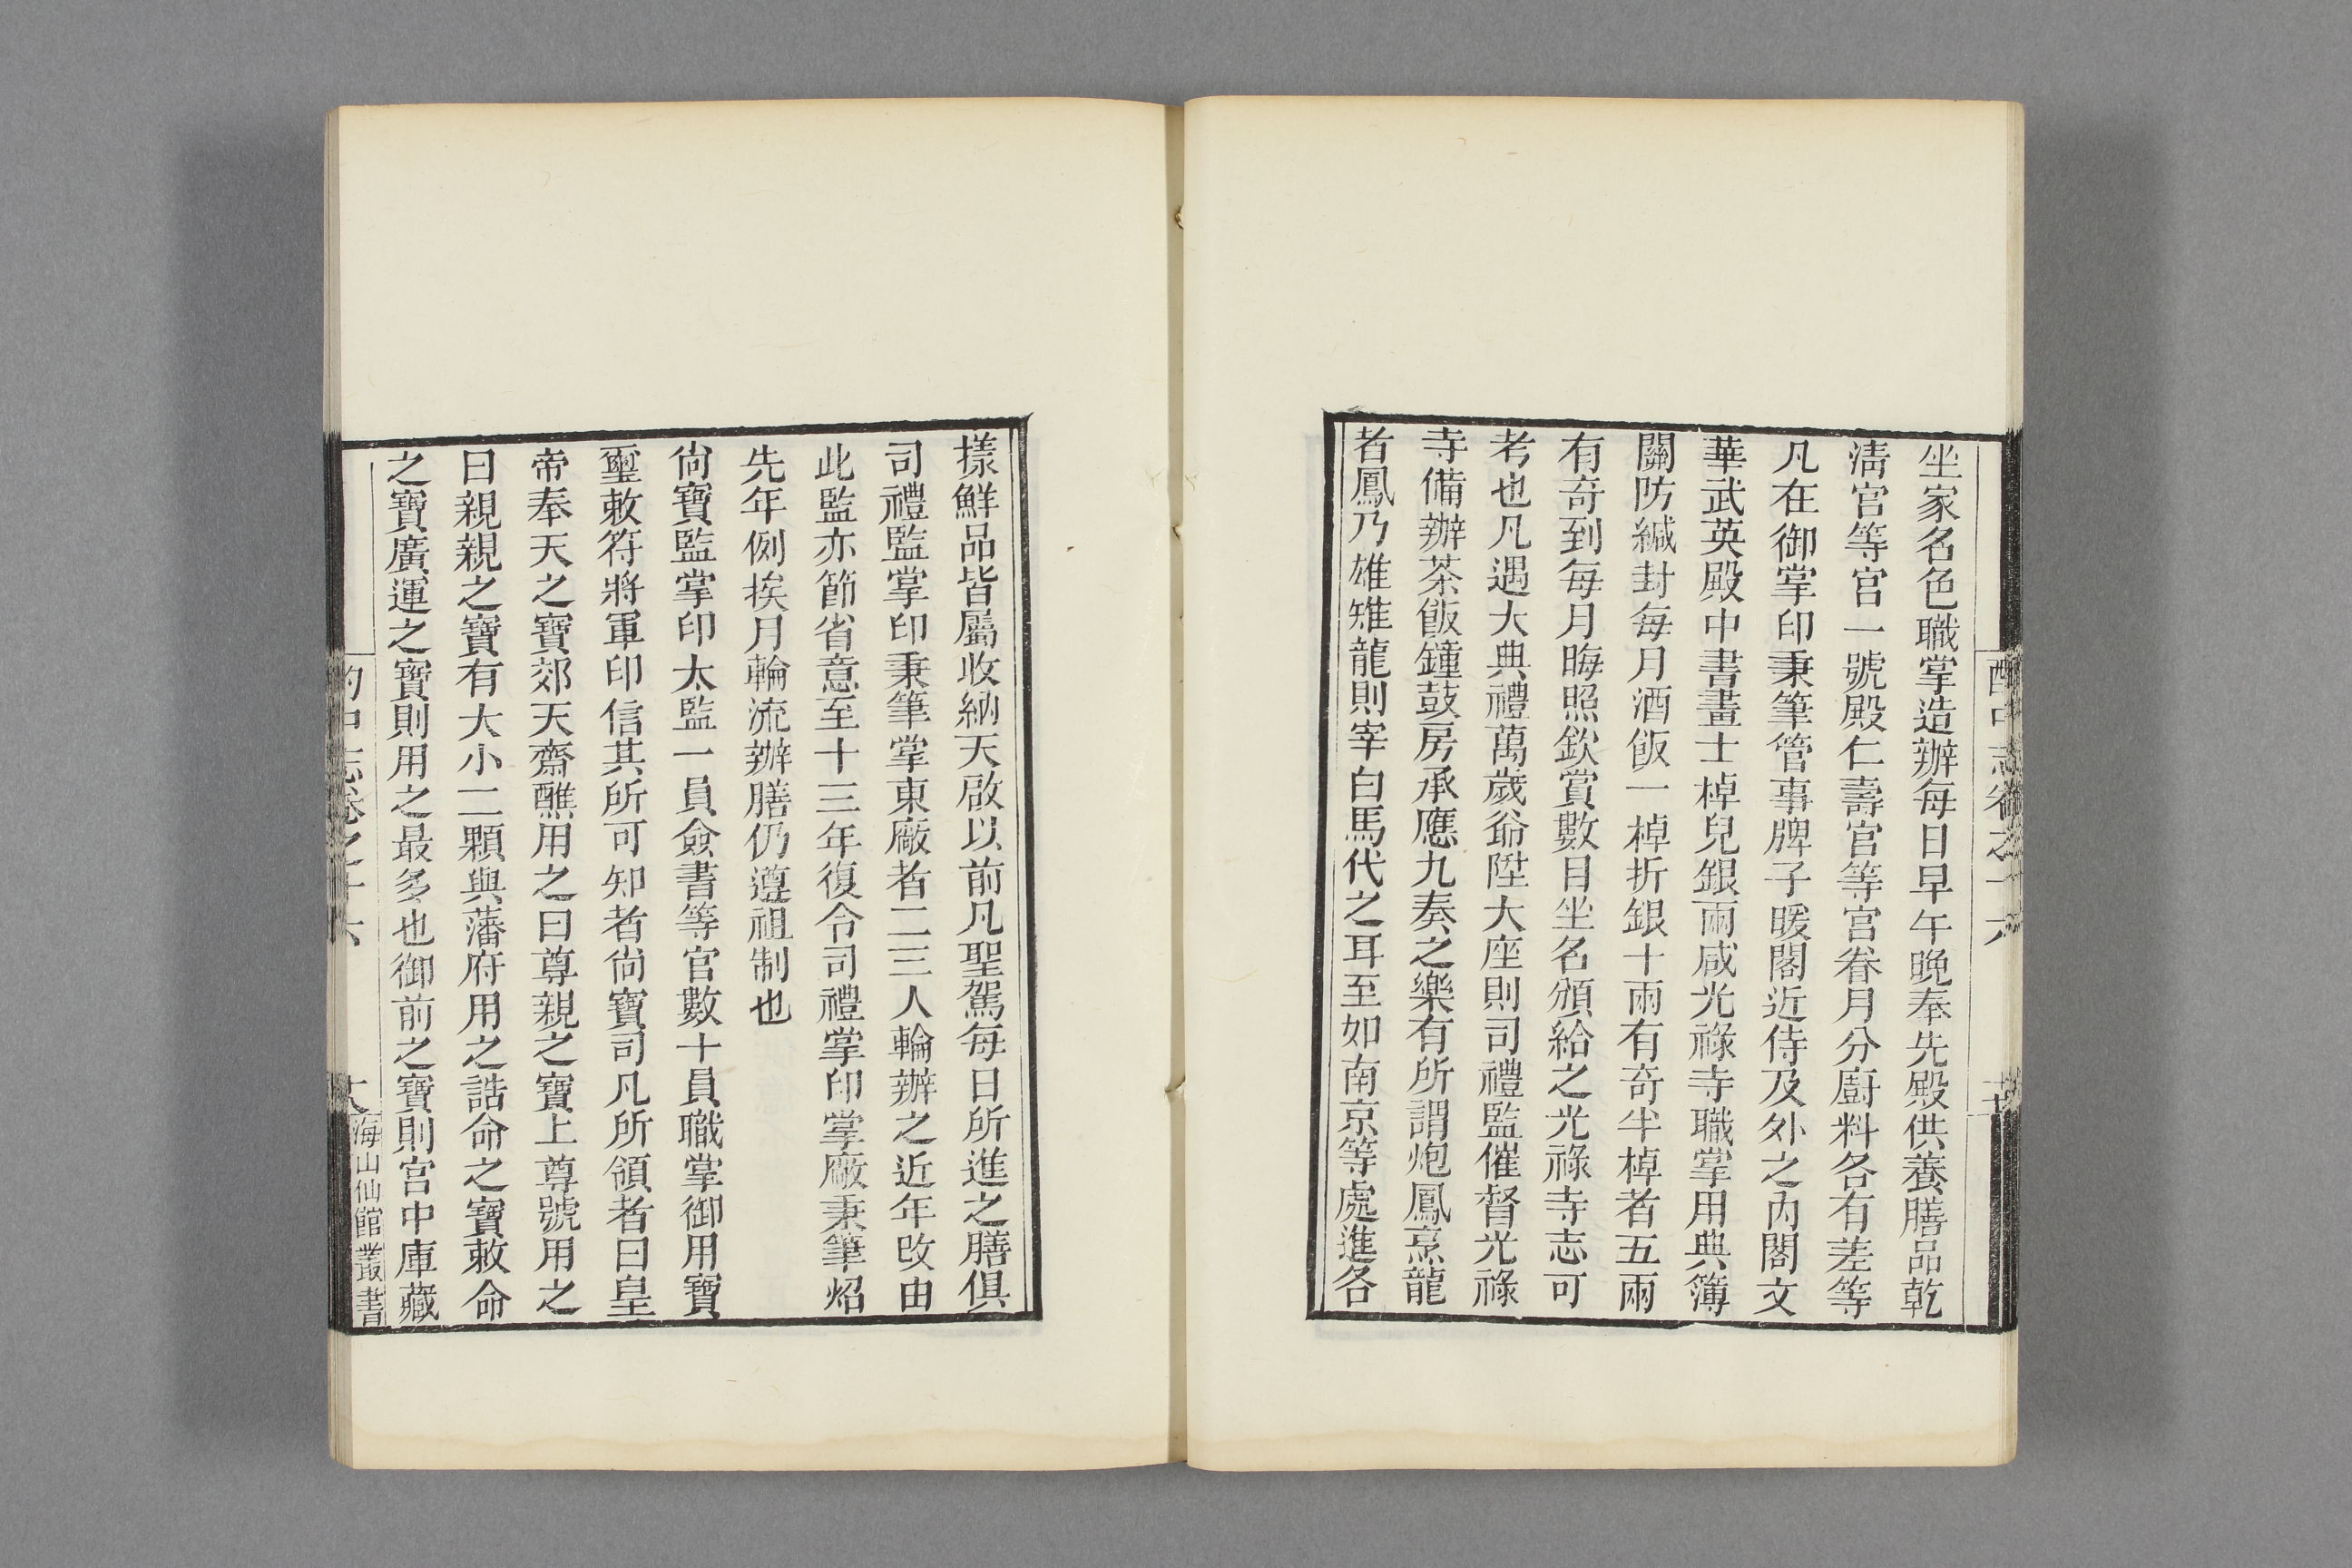 坐家名色職掌造辦每日早午晚奉先殿供養膳品乾
淸宮等宮一號殿仁壽宮等宮眷月分廚料各有差等
凡在御掌印秉筆管事牌子暖閣近侍及外之內閣文
華武英殿中書畫士棹兒銀兩咸光祿寺職掌用典簿
關防緘封每月酒飯一棹折銀十兩有奇半棹者五兩
有奇到每月晦照欽賞數目坐名頒給之光祿寺志可
考也凡遇大典禮萬歲爺陞大座則司禮監催督光祿
寺備辦茶飯鐘鼓房承應九奏之樂有所謂炮鳳烹龍
者鳳乃雄雉龍則宰白馬代之耳至如南京等處進各
樣鮮品皆屬收納天啟以前凡聖駕每日所進之膳俱
司禮監掌印秉筆掌東廠者二三人輪辦之近年改由
此監亦節省意至十三年復令司禮掌印掌廠秉筆炤
先年例挨月輪流辦膳仍遵祖制也
尙寶監掌印太監一員僉書等官數十員職掌御用寶
璽敕符將軍印信其所可知者尙寶司凡所領者曰皇
帝奉天之寶郊天齋醮用之曰尊親之寶上尊號用之
曰親親之寶有大小二顆與藩府用之誥命之寶敕命
之寶廣運之寶則用之最多也御前之寶則宮中庫藏
酌中志卷之十六
海山仙館叢書